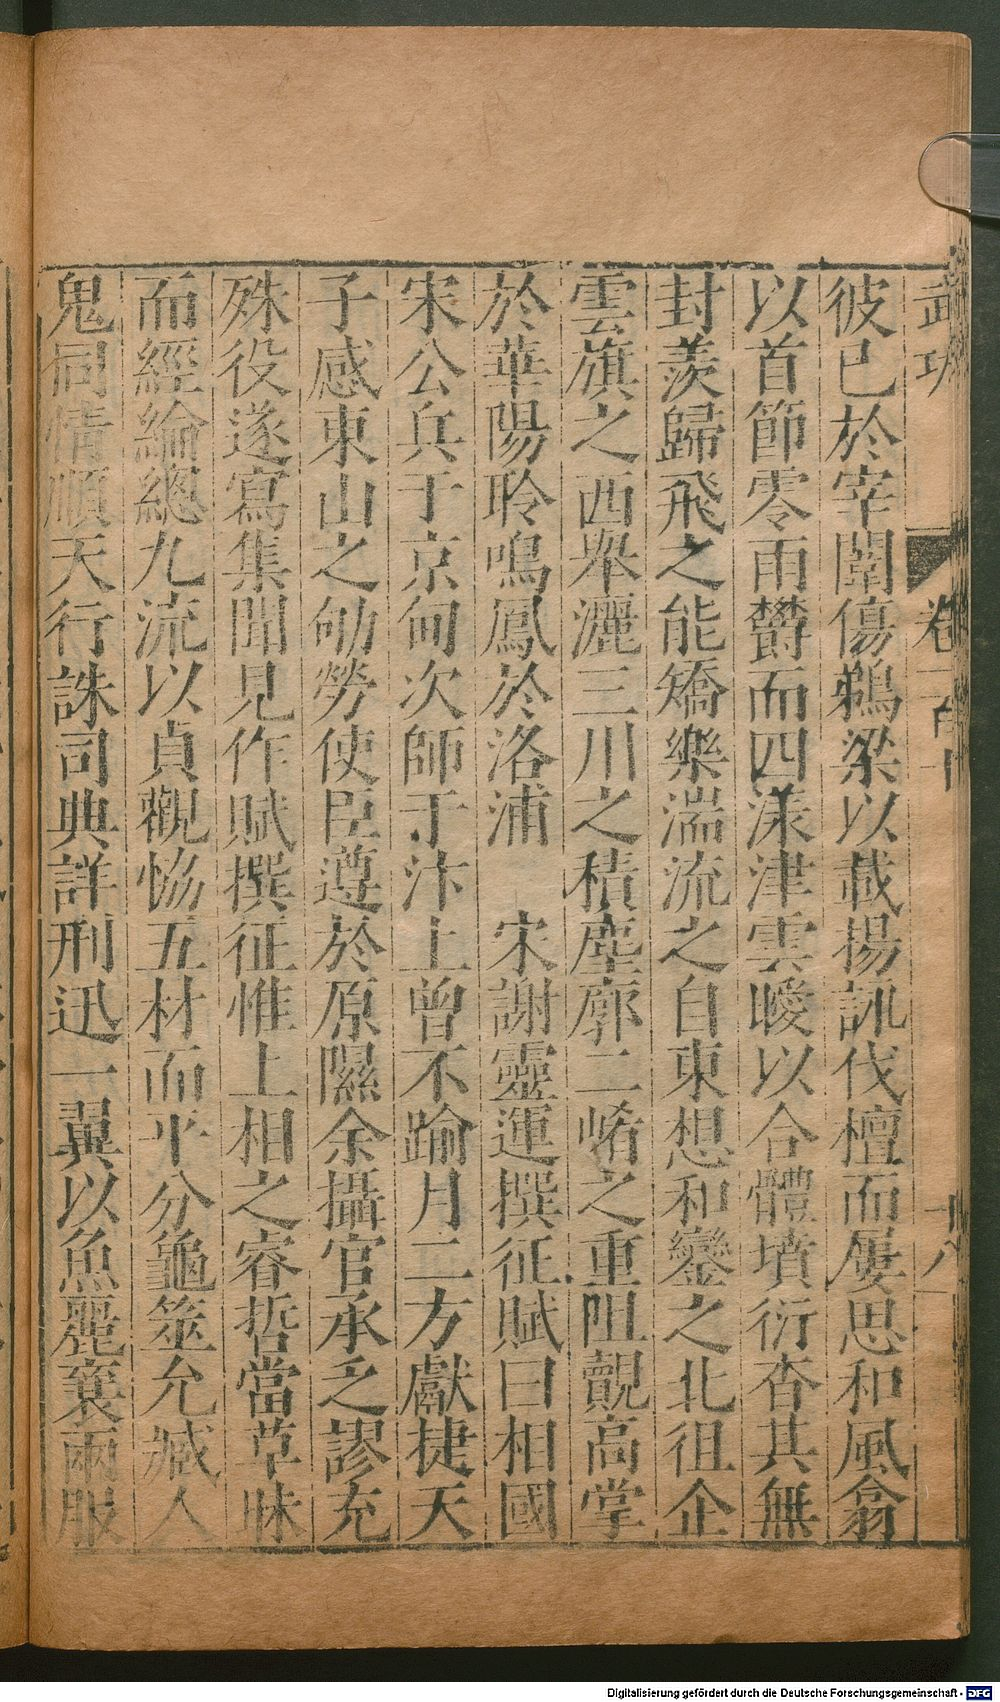 武功 卷二百十 十八
彼已於宰闈傷鵜梁以載揚訊伐檀而屢思和風翕
以首節零雨欝而四漾津雲曖以合體墳衍杳其無
封羨歸飛之能矯樂湍流之自東想和鑾之北徂企
雲旗之西舉灑三川之積塵廓二崤之重阻覿高掌
於華陽聆鳴鳳於洛浦 宋謝靈運撰征賦曰相國
宋公兵于京甸次師于汴上曾不踰月二方獻捷天
子感東山之劬勞使臣遵於原隰余攝官承乏謬充
殊役遂寫集聞見作賦撰征惟上相之睿哲當草昧
而經綸總九流以貞觀恊五材而平分龜筮允臧人
鬼同情順天行誅司典詳刑迅一翼以魚麗襄兩服
Digitalisierung gefördert durch die Deutsche Forschungsgemeinschaft - DFG